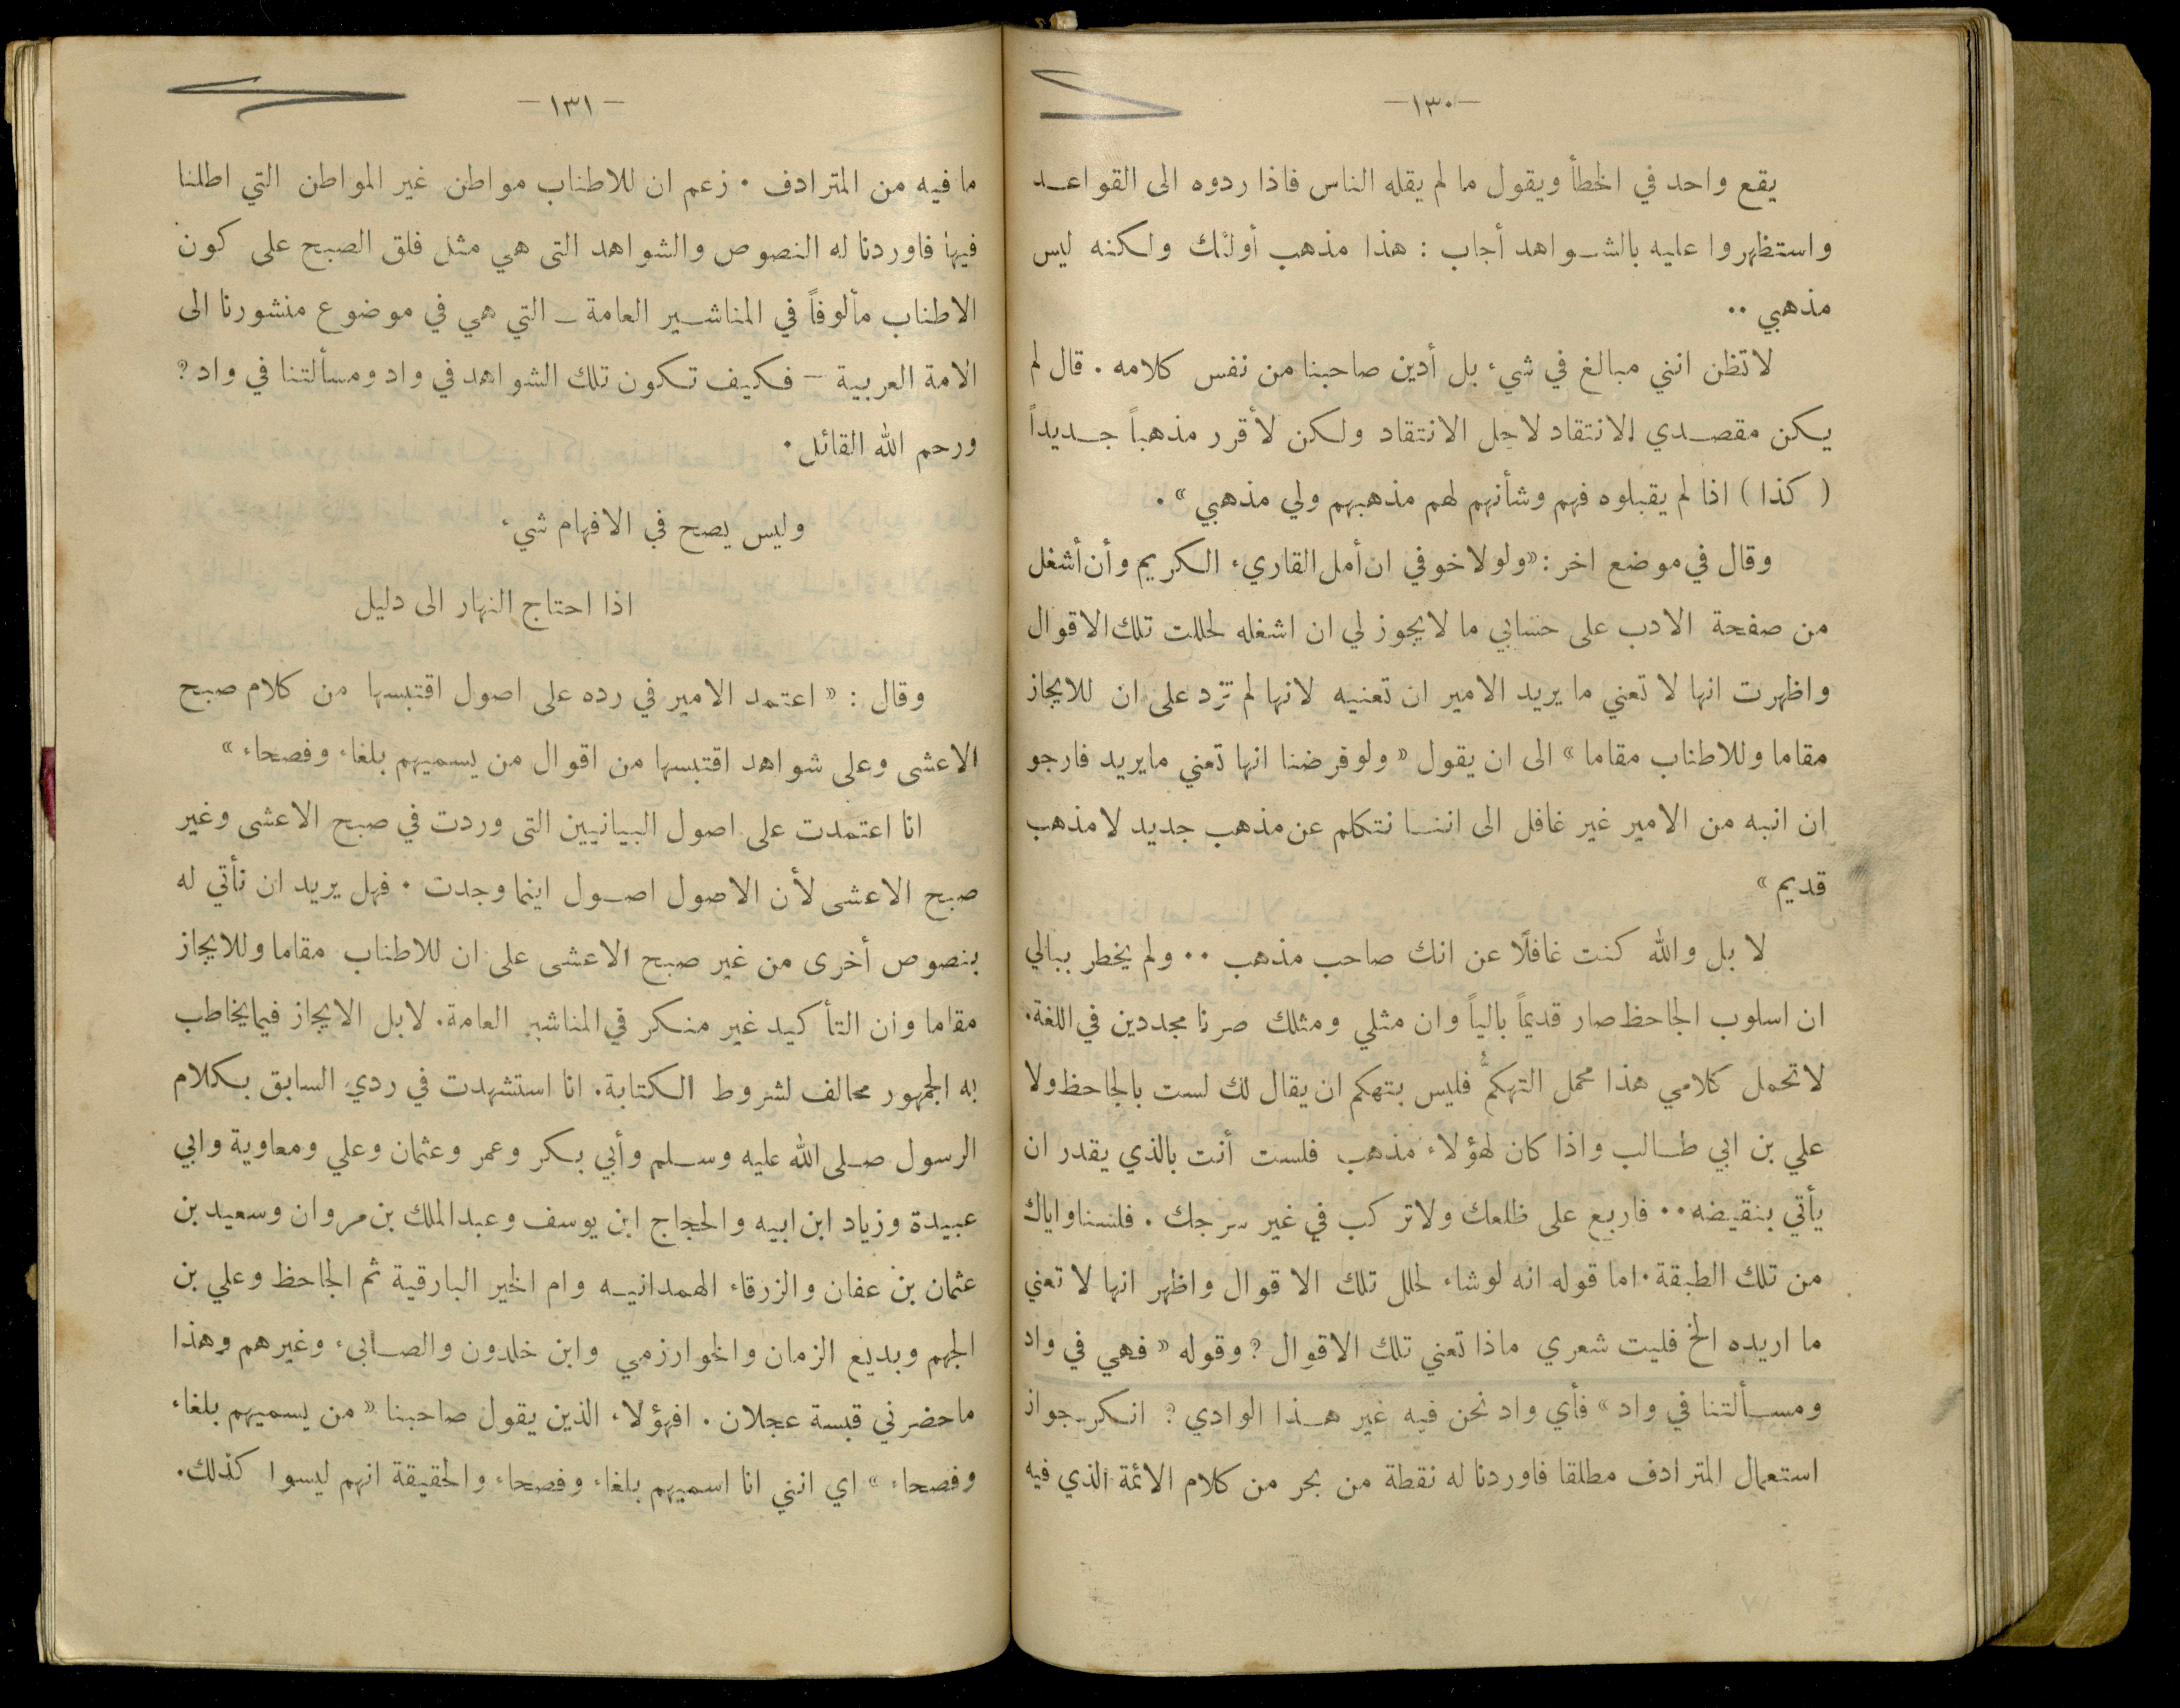 —١٣٠—
يقع واحد في الخطأ ويقول ما لم يقله الناس فاذا ردوه الى القواعد
واستظهروا عليه بالشواهد أجاب : هذا مذهب أولئك ولكنه ليس
مذهبي ..
لا تظن انني مبالغ في شيء بل أدين صاحبنا من نفس كلامه . قال لم
يكن مقصدي الانتقاد لاجل الانتقاد ولكن لأقرر مذهباً جديداً
( كذا ) اذا لم يقبلوه فهم وشأنهم لهم مذهبهم ولي مذهبي » .
وقال في موضع اخر : « ولولا خوفي ان أمل القاريء الكريم وأن أشغل
من صفحة الادب على حسابي ما لا يجوز لي ان اشغله لحللت تلك الاقوال
واظهرت انها لا تعني ما يريد الامير ان تعنيه لانها لم تزد على ان للايجاز
مقاما وللاطناب مقاما » الى ان يقول « ولو فرضنا انها تعني ما يريد فارجو
ان انبه من الامير غير غافل الى اننا نتكلم عن مذهب جديد لا مذهب
قديم »
لا بل والله كنت غافلًا عن انك صاحب مذهب .. ولم يخطر ببالي
ان اسلوب الجاحظ صار قديماً بالياً وان مثلي ومثلك صرنا مجددين في اللغة.
لا تحمل كلامي هذا محمل التهكم فليس بتهكم ان يقال لك لست بالجاحظ ولا
علي بن ابي طالب واذا كان لهؤلاء مذهب فلست أنت بالذي يقدر ان
يأتي بنقيضه .. فاربع على ظلعك ولا تركب في غير سرجك . فلسنا واياك
من تلك الطبقة . اما قوله انه لو شاء لحلل تلك الاقوال واظهر انها لا تعني
ما اريده الخ فليت شعري ماذا تعني تلك الاقوال ؟ وقوله « فهي في واد
ومسألتنا في واد » فأي واد نحن فيه غير هذا الوادي ؟ انكر جواز
استعمال المترادف مطلقا فاوردنا له نقطة من بحر من كلام الائمة الذي فيه
—١٣١—
ما فيه من المترادف . زعم ان للاطناب مواطن غير المواطن التي اطلنا
فيها فاوردنا له النصوص والشواهد التي هي مثل فلق الصبح على كون
الاطناب مألوفاً في المناشير العامة — التي هي في موضوع منشورنا الى
الامة العربية — فكيف تكون تلك الشواهد في واد ومسألتنا في واد ؟
ورحم الله القائل .
وليس يصح في الافهام شيء
اذا احتاج النهار الى دليل
وقال : « اعتمد الامير في رده على اصول اقتبسها من كلام صبح
الاعشى وعلى شواهد اقتبسها من اقوال من يسميهم بلغاء وفصحاء »
انا اعتمدت على اصول البيانيين التي وردت في صبح الاعشى وغير
صبح الاعشى لأن الاصول اصول اينما وجدت . فهل يريد ان نأتي له
بنصوص أخرى من غير صبح الاعشى على ان للاطناب مقاما وللايجاز
مقاما وان التأكيد غير منكر في المناشير العامة. لا بل الايجاز فيما يخاطب
به الجمهور مخالف لشروط الكتابة. انا استشهدت في ردي السابق بكلام
الرسول صلى الله عليه وسلم وأبي بكر وعمر وعثمان وعلي ومعاوية وابي
عبيدة وزياد ابن ابيه والحجاج ابن يوسف وعبد الملك بن مروان وسعيد بن
عثمان بن عفان والزرقاء الهمدانيه وام الخير البارقية ثم الجاحظ وعلي بن
الجهم وبديع الزمان والخوارزمي وابن خلدون والصابيء وغيرهم وهذا
ما حضرني قبسة عجلان . افهؤلاء الذين يقول صاحبنا « من يسميهم بلغاء
وفصحاء » اي انني انا اسميهم بلغاء وفصحاء والحقيقة انهم ليسوا كذلك.